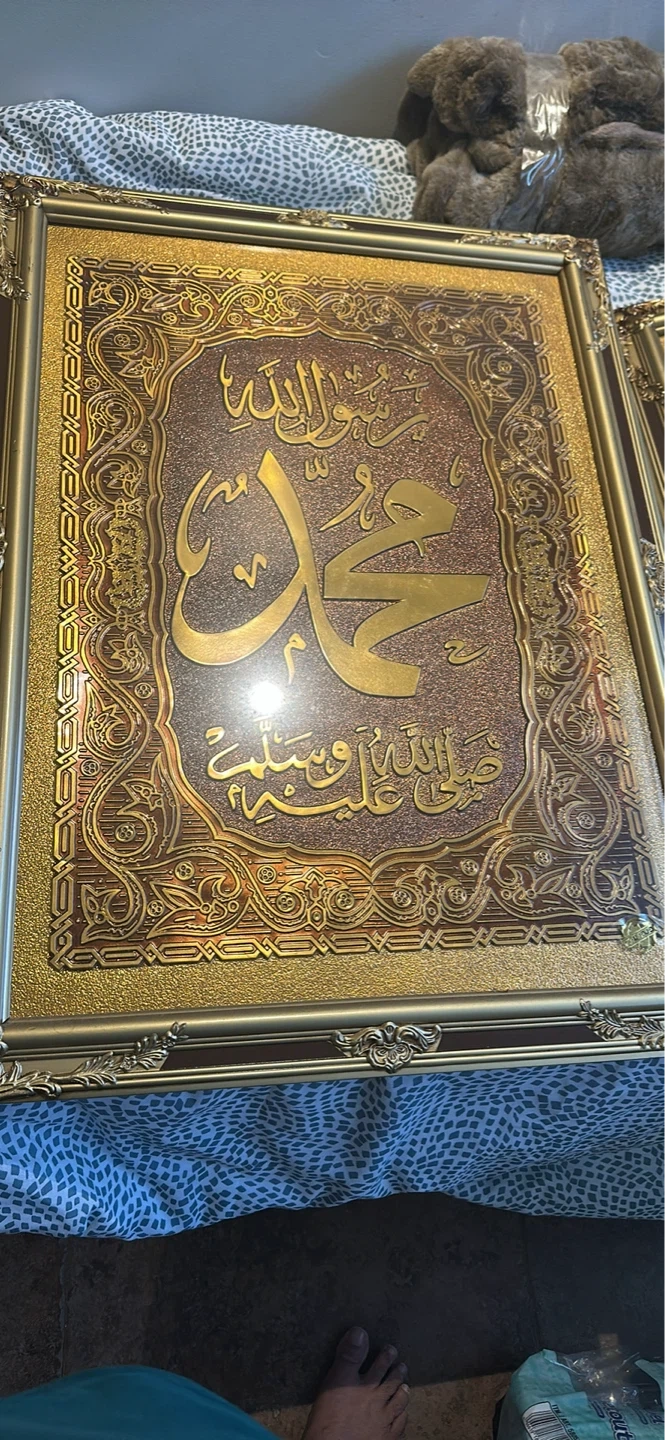 رَسُولُ اللَّه
مُحَمَّد
صَلَّى اللَّهُ عَلَيْهِ وَسَلَّمَ